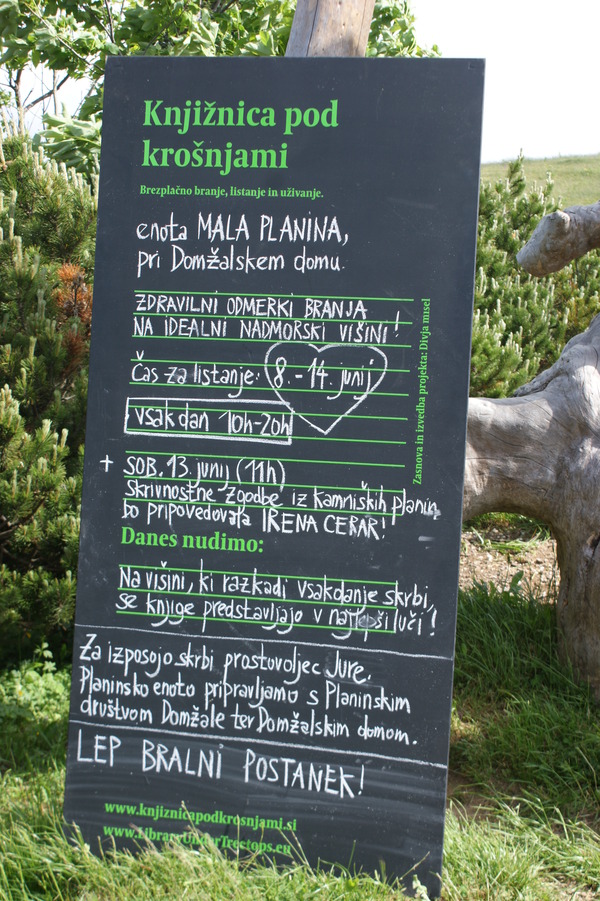 Knjižnica pod
krošnjami
Brezplačno branje, listanje in uživanje.
enota MALA PLANINA,
pri Domžalskem domu.
ZDRAVILNI ODMERKI BRANJA
NA IDEALNI NADMORSKI VIŠINI!
Čas za listanje: 8. - 14. junij
vsak dan 10h-20h
+ SOB. 13. junij (11h)
Skrivnostne zgodbe iz kamniških planin
bo pripovedovala IRENA CERAR!
Danes nudimo:
Na višini, ki razkadi vsakdanje skrbi,
se knjige predstavljajo v najlepši luči!
Za izposojo skrbi prostovoljec Jure.
Planinsko enoto pripravljamo s Planinskim
društvom Domžale ter Domžalskim domom.
LEP BRALNI POSTANEK!
www.knjiznicapodkrosnjami.si
www.LibraryUnderTreetops.eu
Zasnova in izvedba projekta: Divja misel